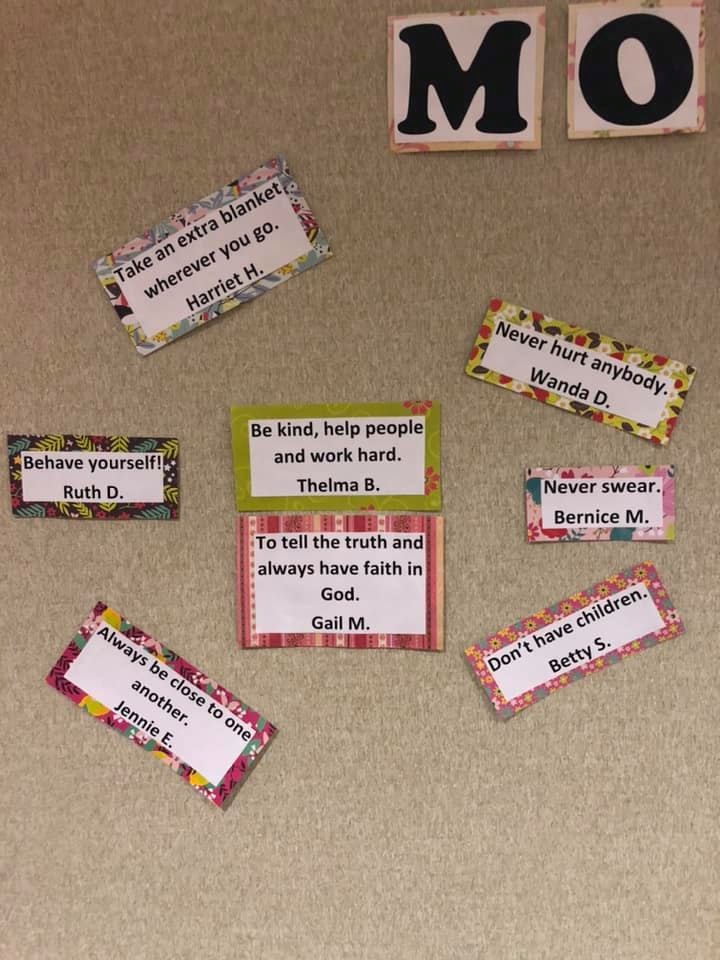 MO
Take an extra blanket
wherever you go.
Harriet H.
Never hurt anybody.
Wanda D.
Be kind, help people
and work hard.
Thelma B.
Behave yourself!
Ruth D.
Never swear.
Bernice M.
To tell the truth and
always have faith in
God.
Gail M.
Don't have children.
Betty S.
Always be close to one
another.
Jennie E.